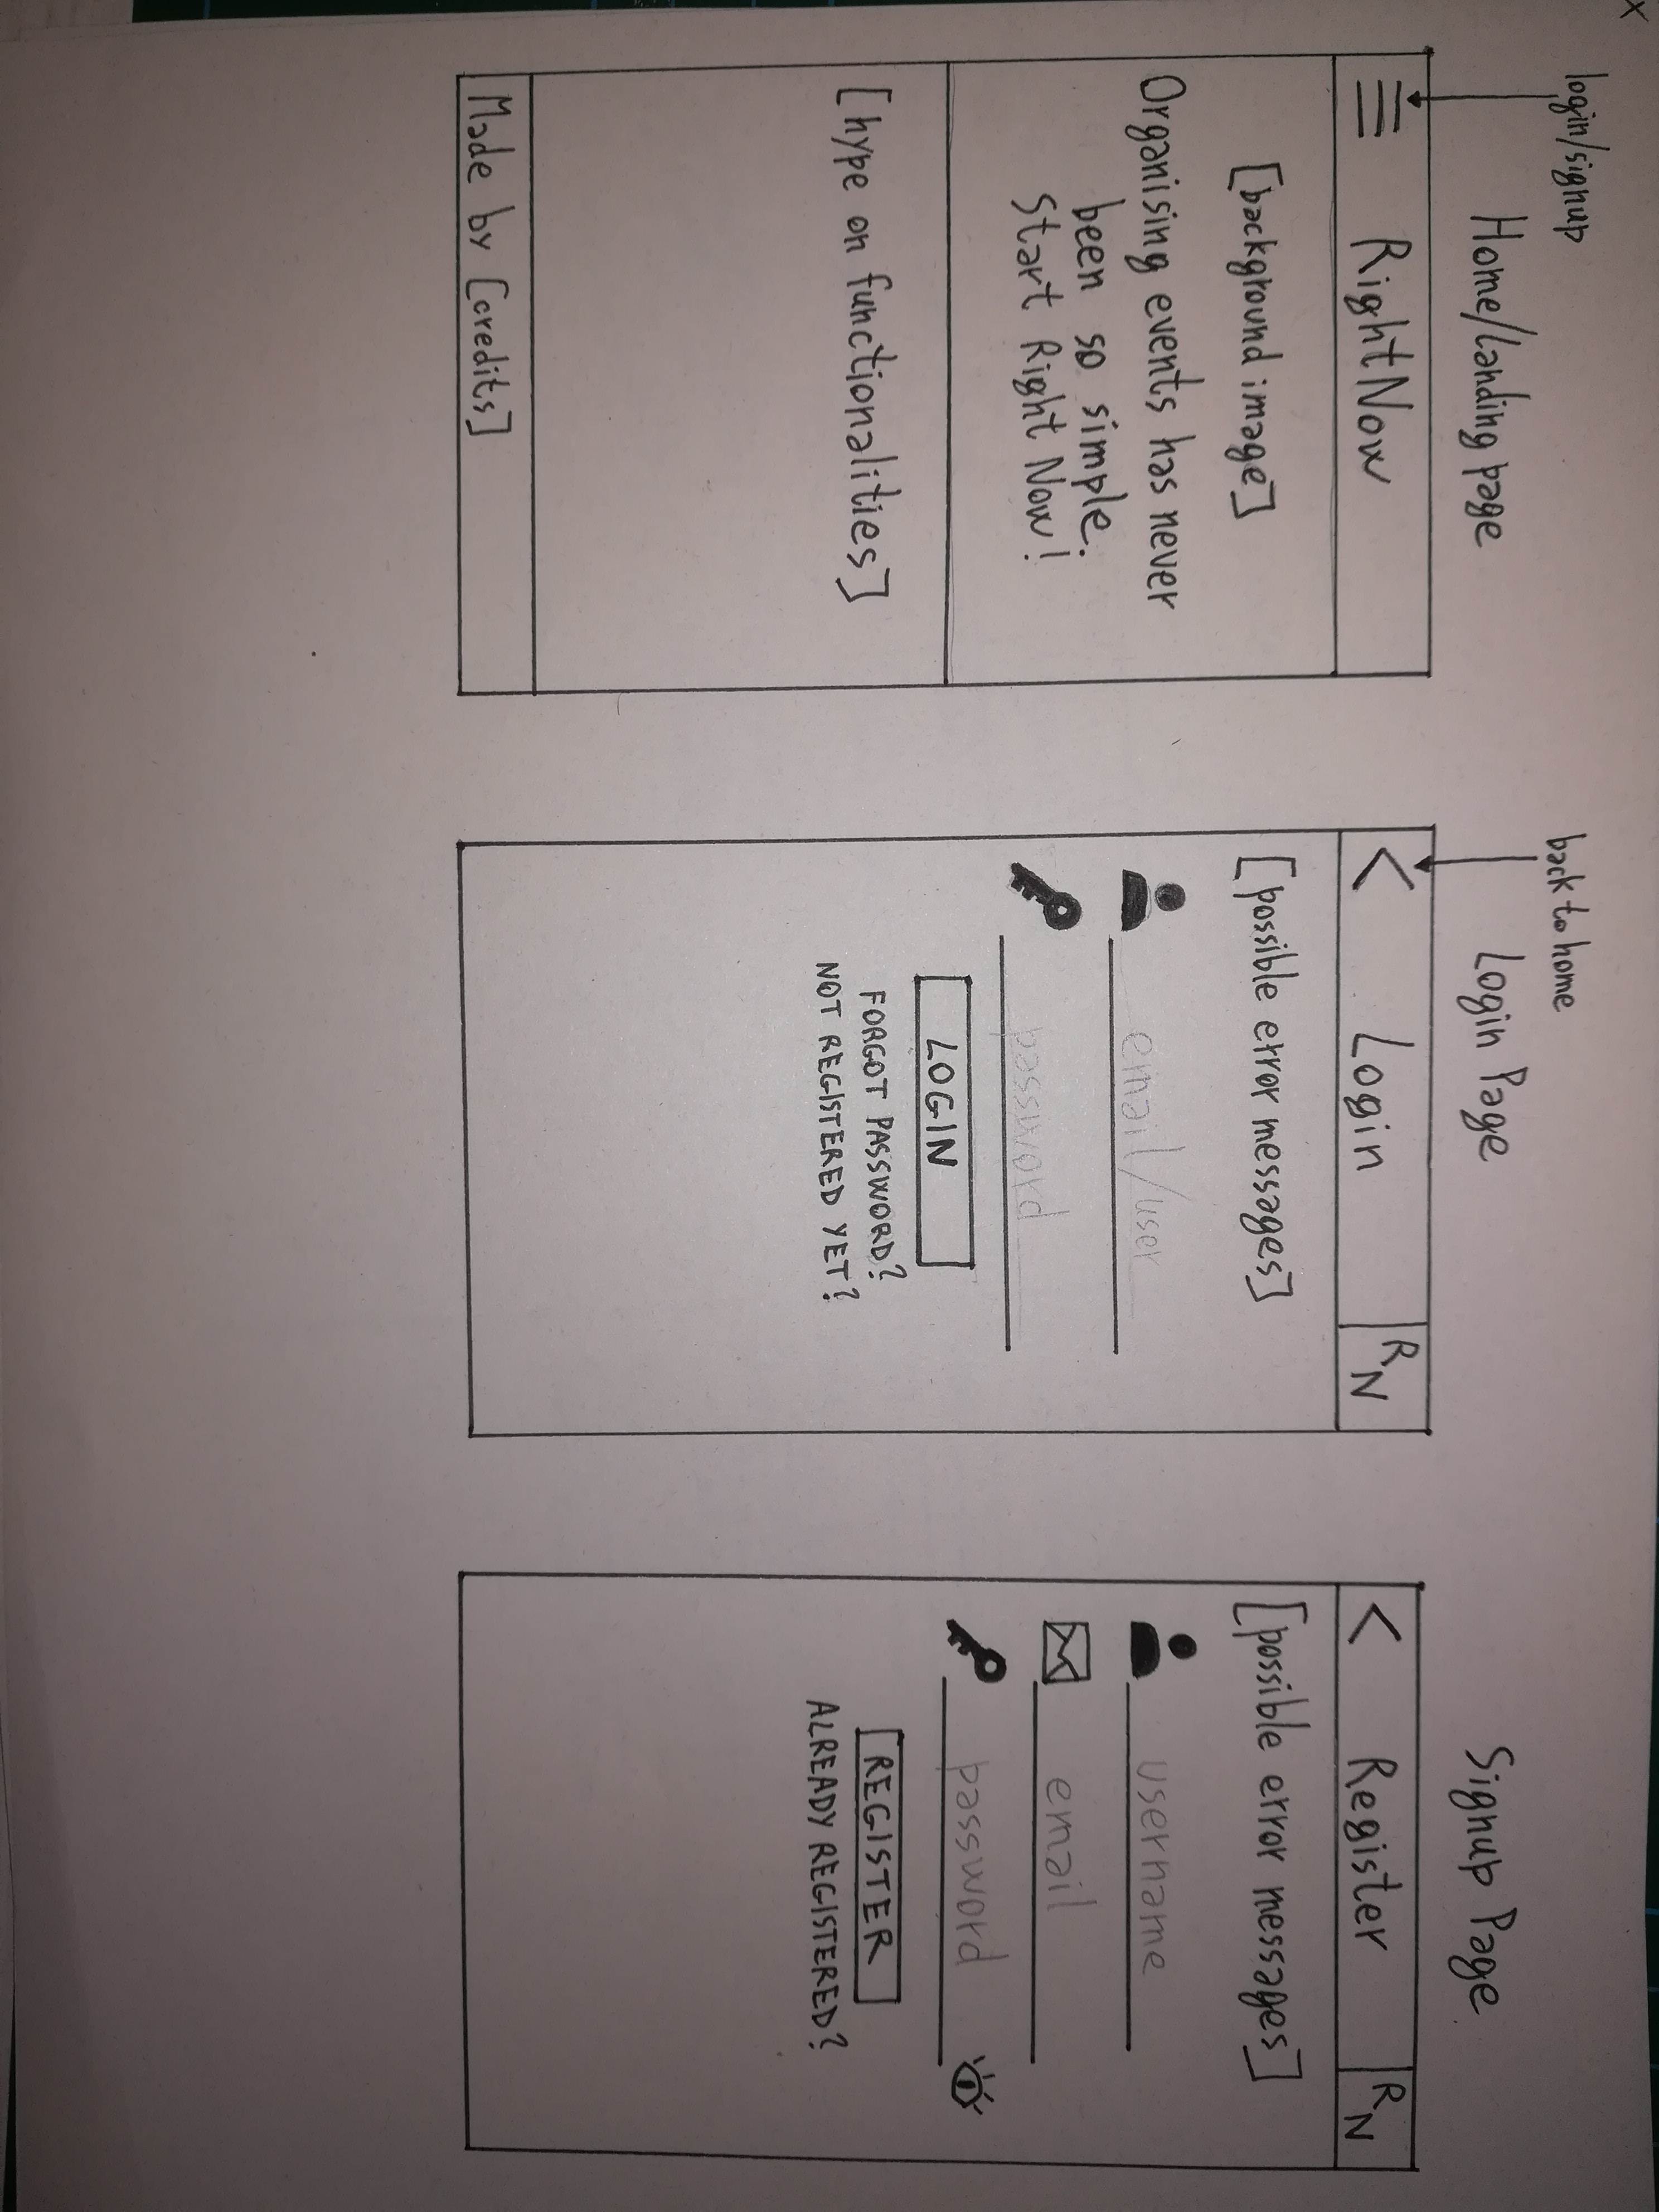 X
login/signup
Home/Landing page
RightNow
[background image]
Organising events has never
been so simple.
Start Right Now!
[hype on functionalities]
Made by [credits]
back to home
Login Page
< Login
R
N
[possible error messages]
email/user
password
LOGIN
FORGOT PASSWORD?
NOT REGISTERED YET?
Signup Page
< Register
R
N
[possible error messages]
username
email
password
REGISTER
ALREADY REGISTERED?